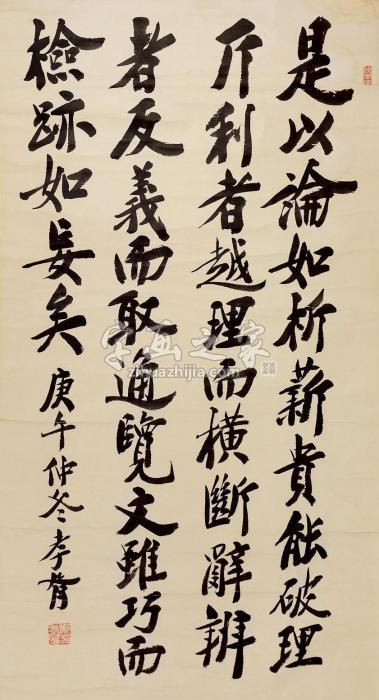 是以論如析薪貴能破理
斤利者越理而橫斷辭辨
者反義而取通覽文雖巧而
檢跡如妄矣
庚午仲冬孝胥
字画之家
zihuazhijia.com